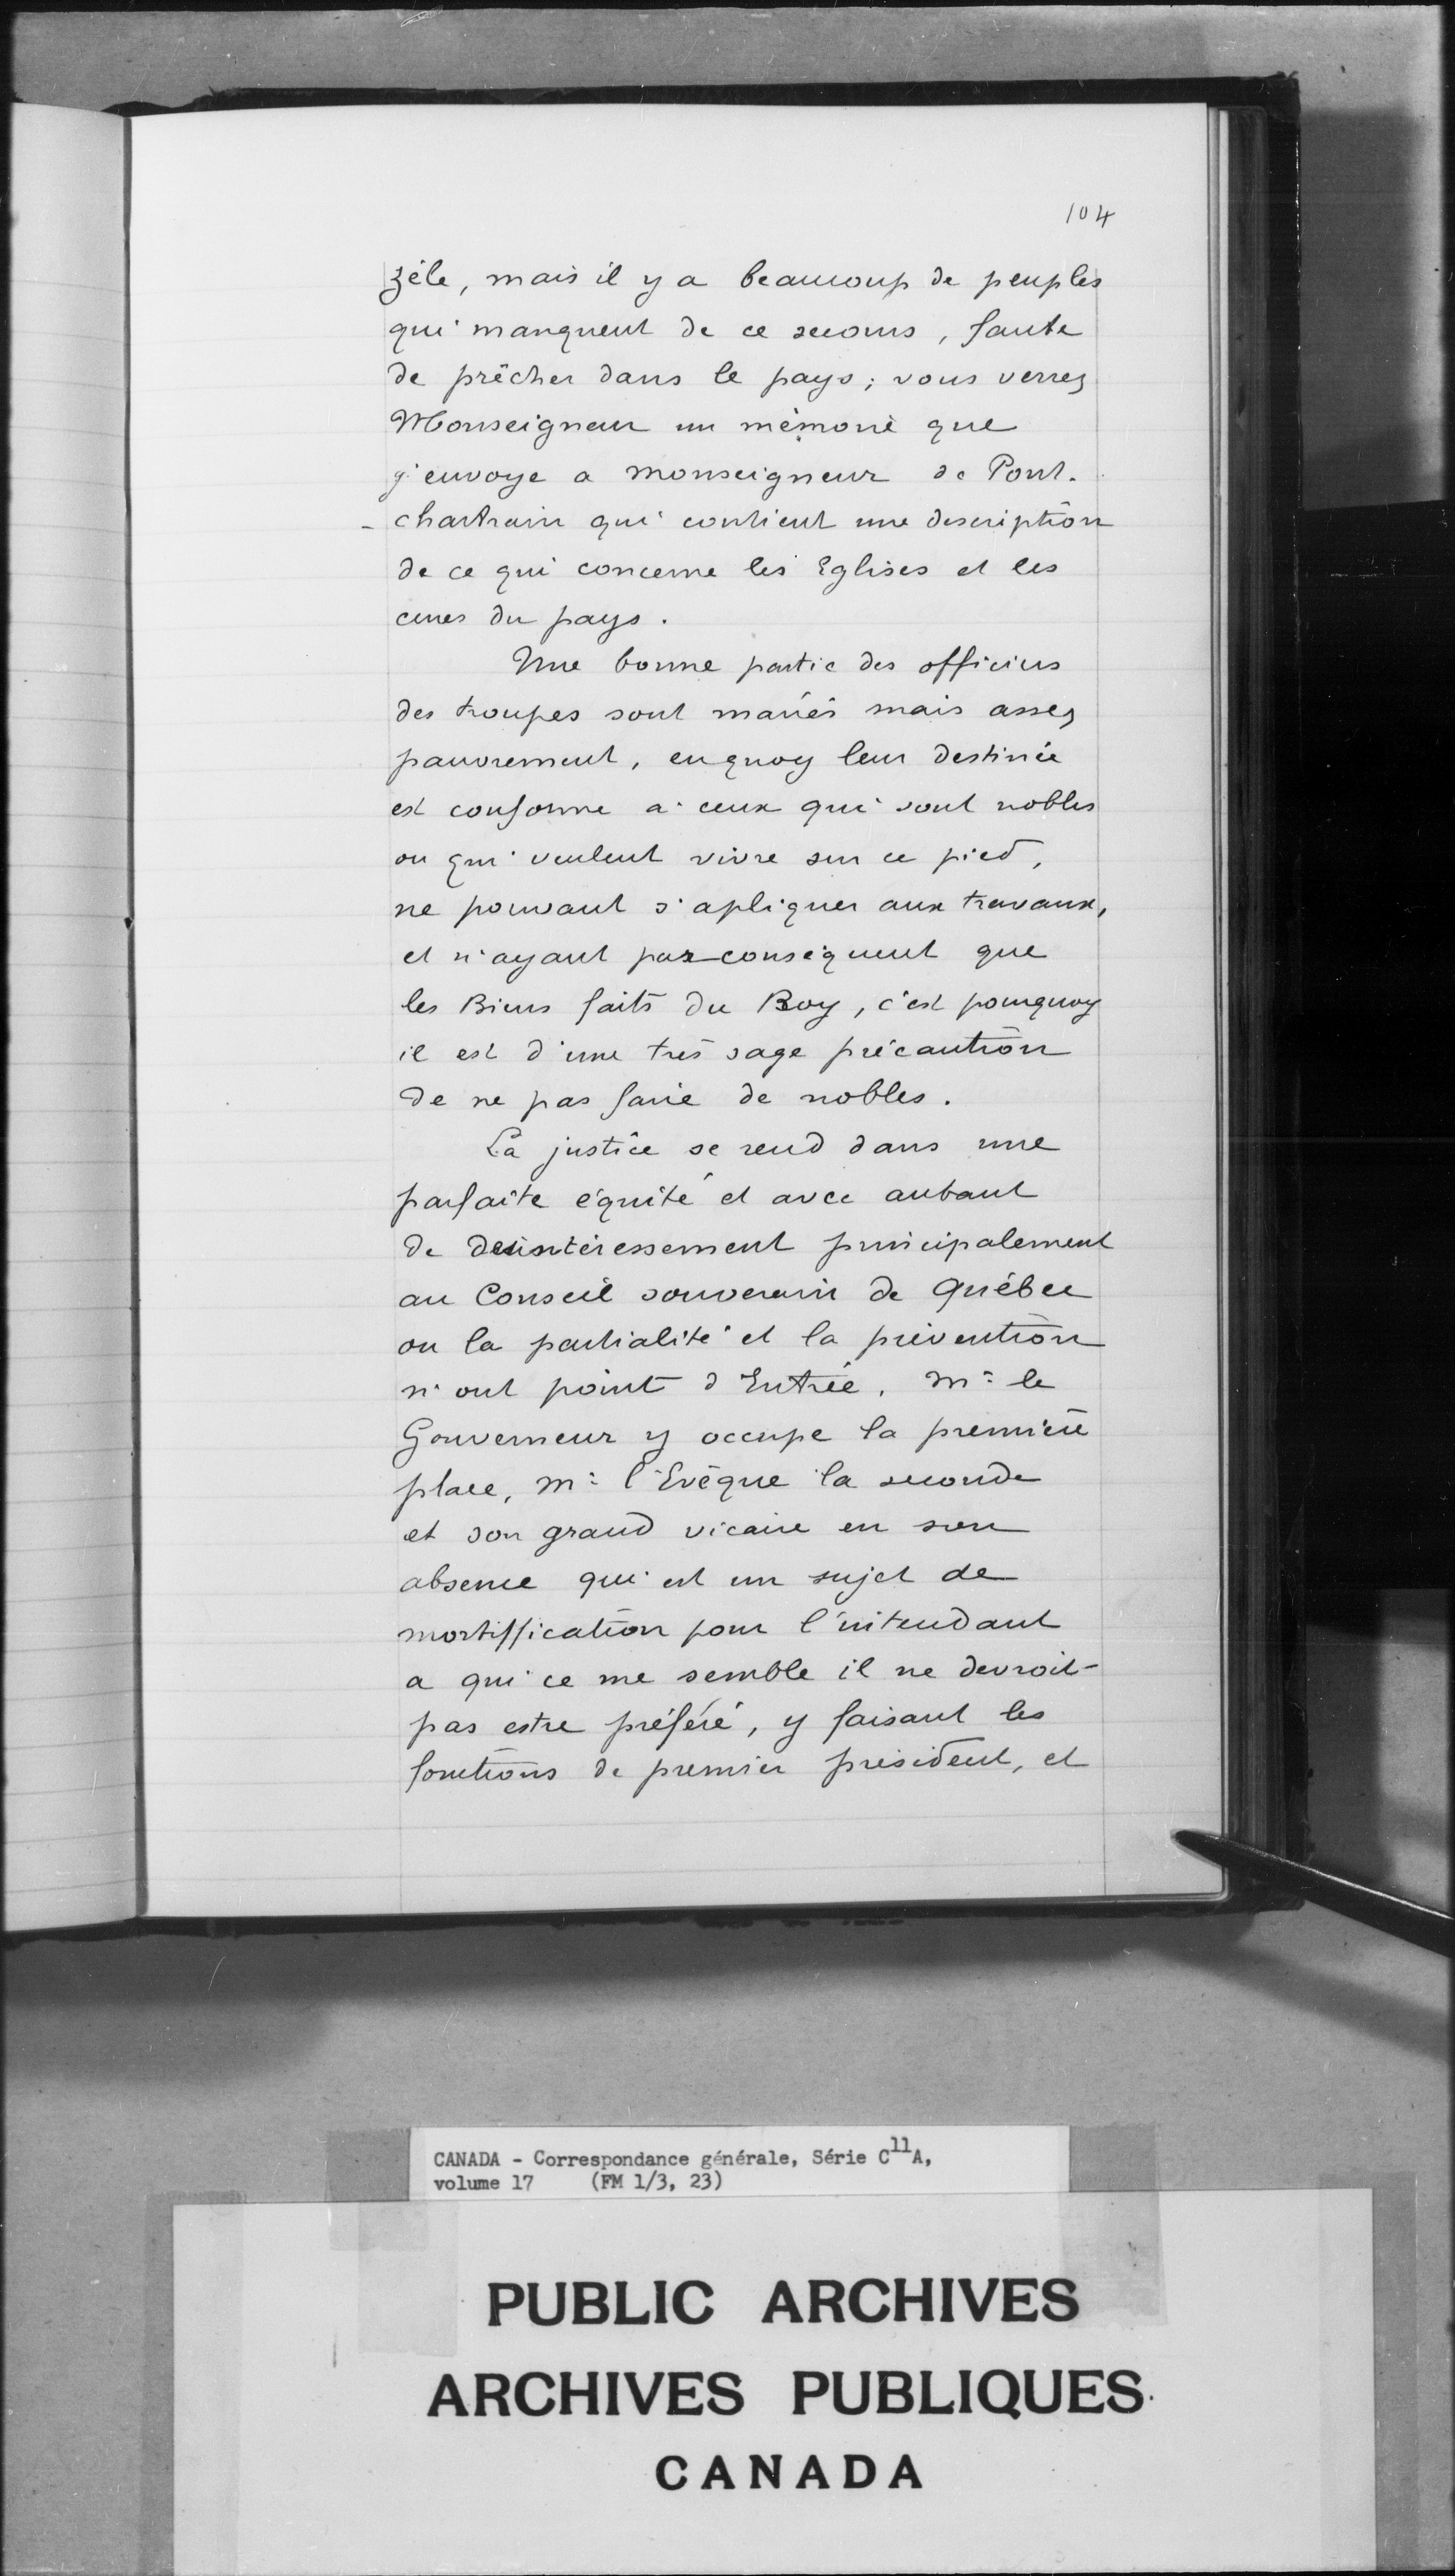 104
zéle, mais il y a beaucoup de peuples
qui manquent de ce secours, faute
de prêcher dans le pays; vous verrez
Monseigneur un mémoire que
j'envoye a Monseigneur de Pont-
-chartrain qui contient une description
de ce qui concerne les Eglises et les
cures du pays.
Une bonne partie des officiers
des troupes sont mariés mais assez
pauvrement, en quoy leur destinée
est conforme a ceux qui sont nobles
ou qui veulent vivre sur ce pied,
ne pouvant s'apliquer aux travaux,
et n'ayant par conséquent que
les Biens faits du Roy, c'est pourquoy
il est d'une très sage précaution
de ne pas faire de nobles.
La justice se rend dans une
parfaite équité et avec autant
de desintéressement principalement
au Conseil souverain de Québec
ou la partialité et la prévention
n'ont point d'Entrée. Mr le
Gouverneur y occupe la première
place, Mr l'Evêque la seconde
et son grand vicaire en son
absence qui est un sujet de
mortiffication pour l'intendant
a qui ce me semble il ne devroit-
pas estre préféré, y faisant les
fonctions de premier président, et
CANADA - Correspondance générale, Série C11A,
volume 17 (FM 1/3, 23)
PUBLIC ARCHIVES
ARCHIVES PUBLIQUES
CANADA